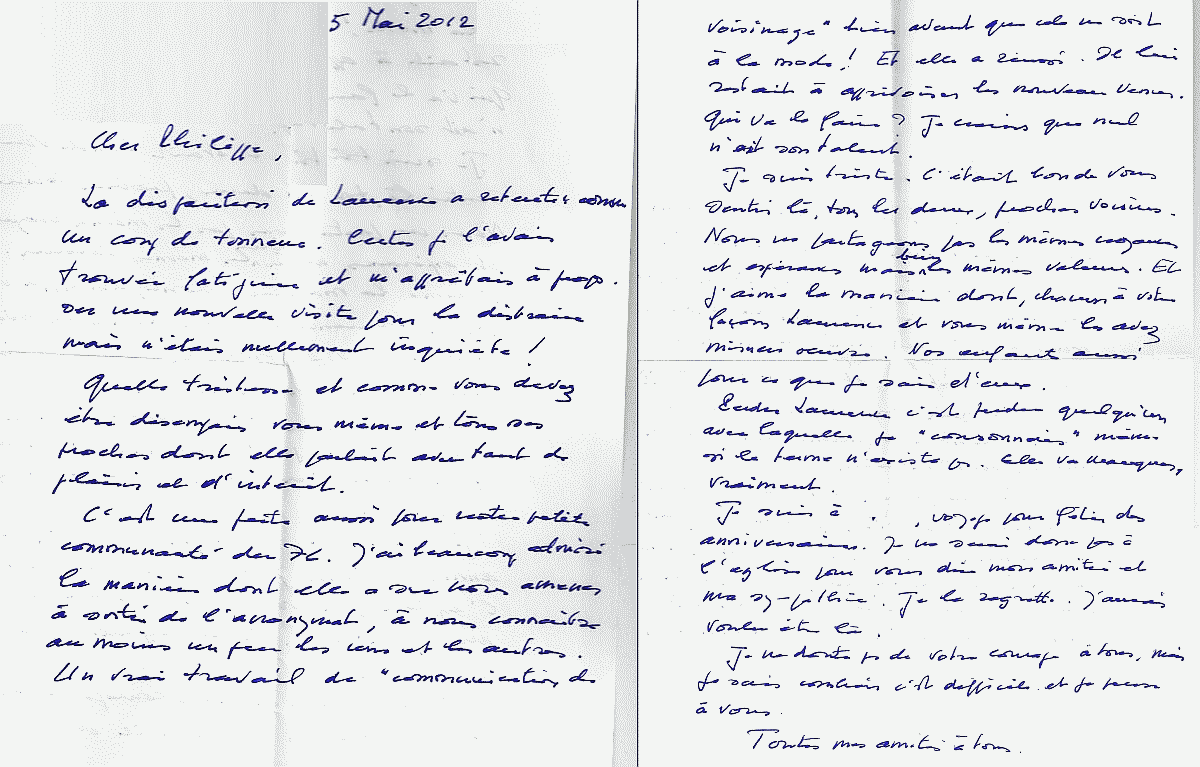 5 Mai 2012
Cher Philippe,
La disparition de Laurence a retenti comme
un coup de tonnerre. Certes je l'avais
trouvée fatiguée et m'apprêtais à propo-
ser une nouvelle visite pour la distraire
mais n'étais nullement inquiète !
Quelle tristesse et comme vous devez
être désemparés vous même et tous ses
proches dont elle parlait avec tant de
plaisir et d'intérêt.
C'est une perte aussi pour notre petite
communauté du 76. J'ai beaucoup admiré
la manière dont elle a su nous amener
à sortir de l'anonymat, à nous connaître
au moins un peu les uns et les autres.
Un vrai travail de "communication de
voisinage" bien avant que cela ne soit
à la mode ! Et elle a réussi. Il lui
restait à apprivoiser les nouveaux venus.
Qui va le faire ? Je crains que nul
n'ait son talent.
Je suis triste. C'était bon de vous
sentir là, tous les deux, proches voisins.
Nous ne partageons pas les mêmes croyances
et espérances mais bien les mêmes valeurs. Et
j'aime la manière dont, chacun à votre
façon, Laurence et vous même les avez
mises en œuvre. Nos enfants aussi
pour ce que je sais d'eux.
Perdre Laurence c'est perdre quelqu'un
avec laquelle je "consonnais" même
si le terme n'existe pas. Elle va manquer,
vraiment.
Je suis à , voyage pour fêter des
anniversaires. Je ne serai donc pas à
l'église pour vous dire mon amitié et
ma sympathie. Je le regrette. J'aurais
voulu être là.
Je ne doute pas de votre courage à tous, mais
je sais combien c'est difficile et je pense
à vous.
Toutes mes amitiés à tous.